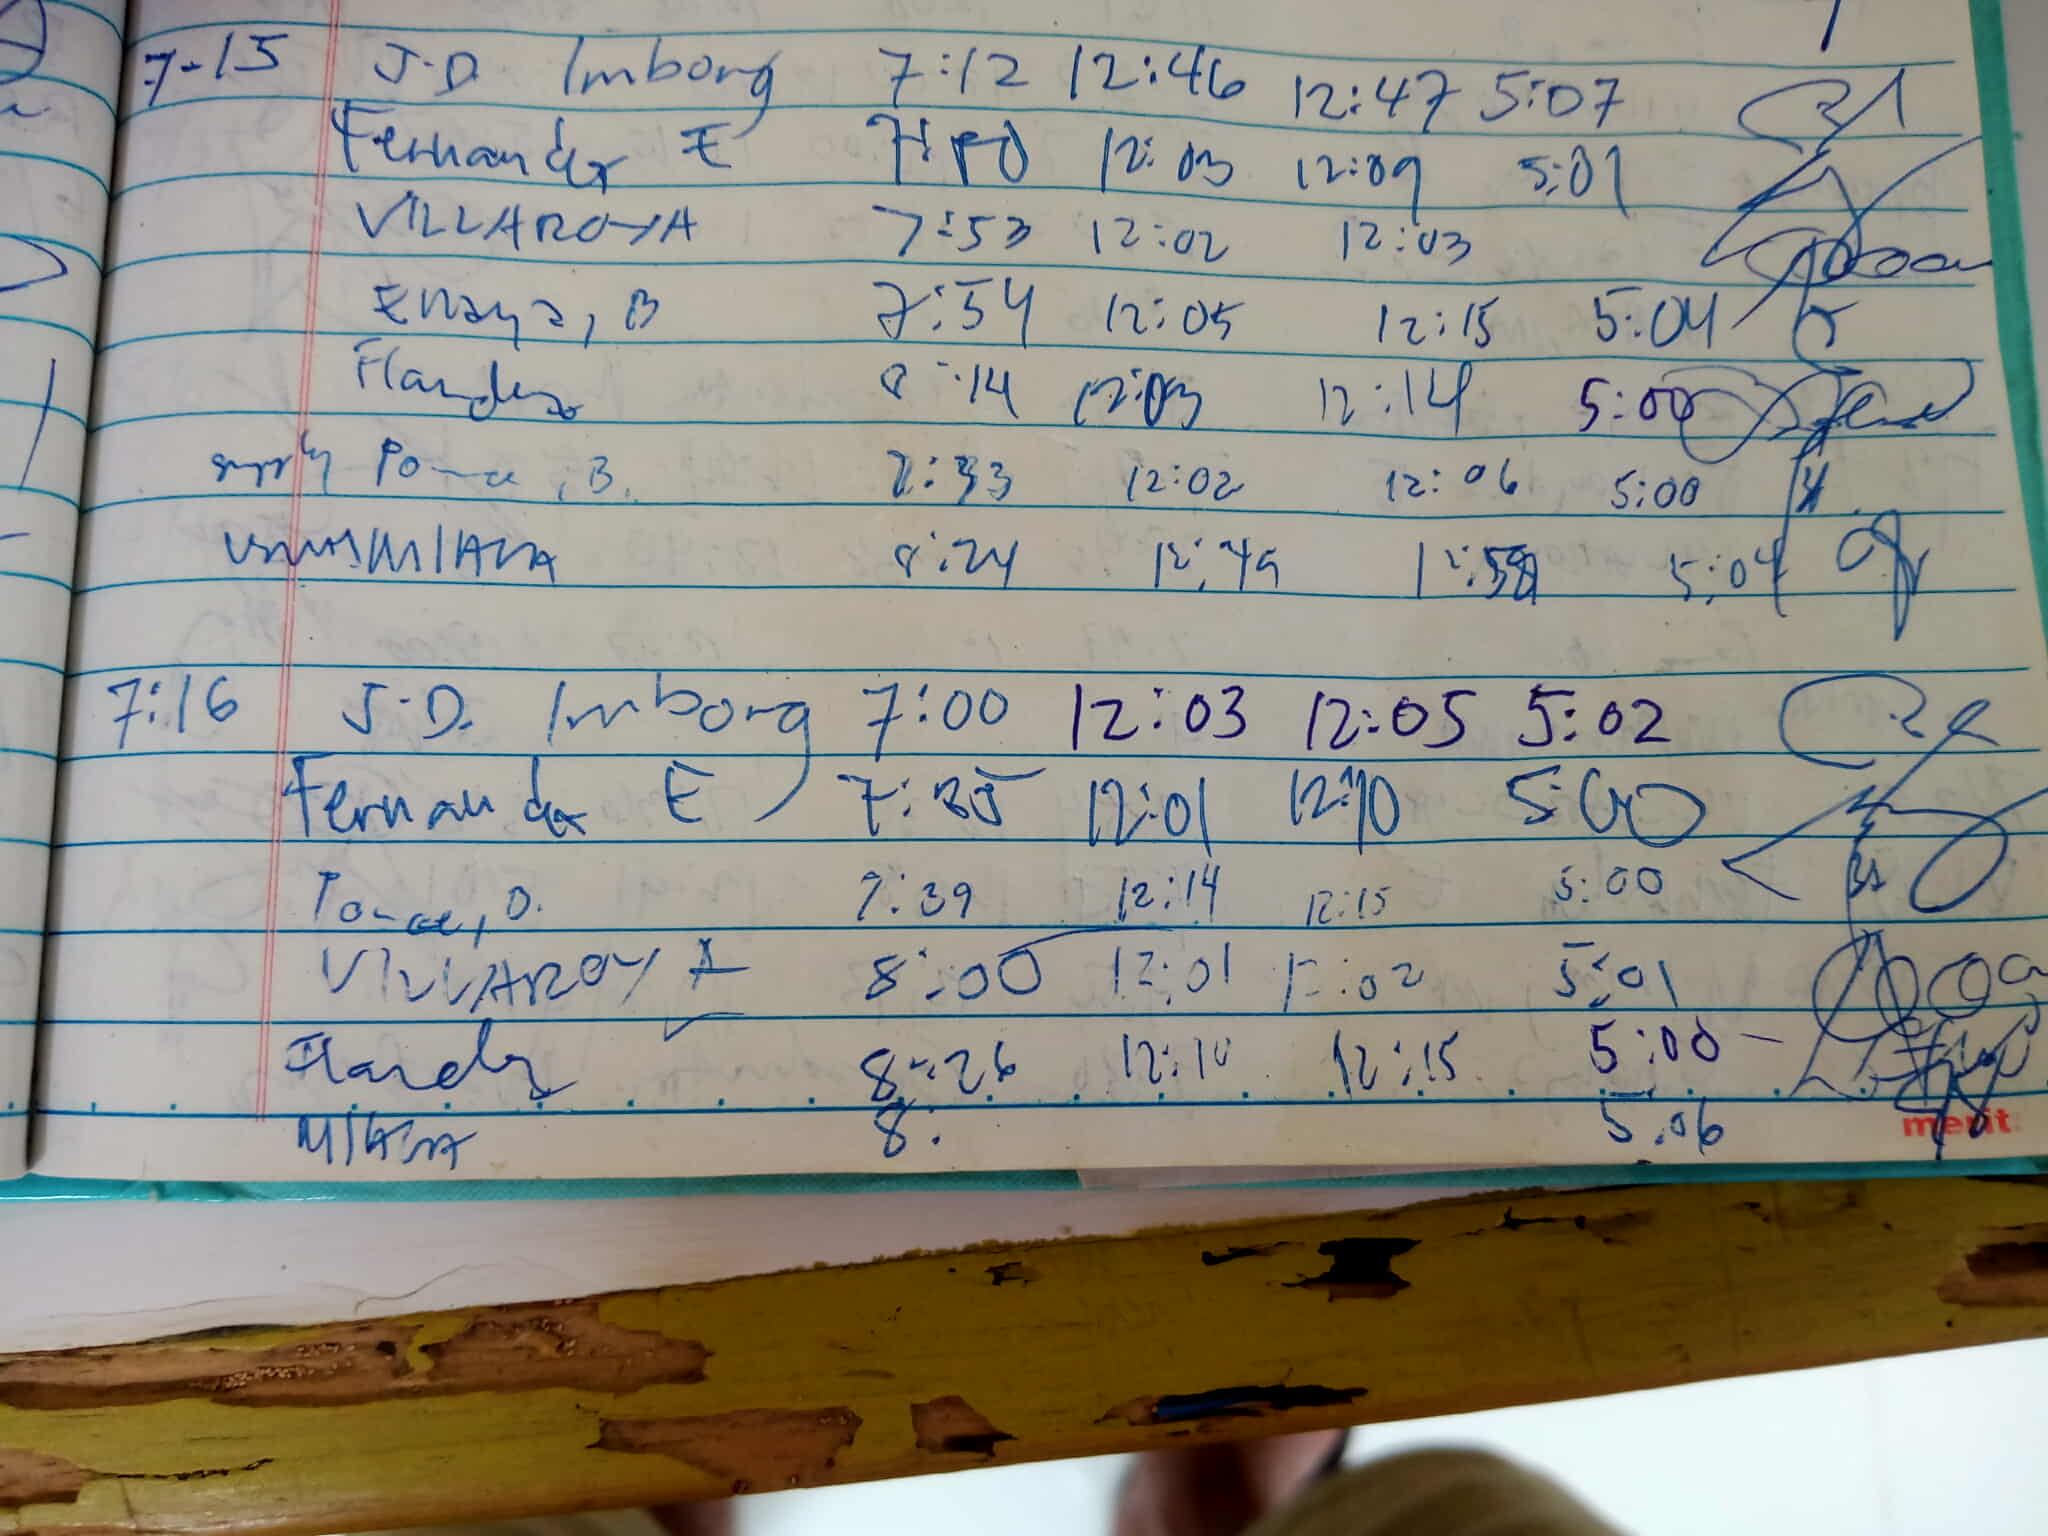 7-15 J.D. Imborg 7:12 12:46 12:47 5:07
Fernandez E 12:03 12:09 5:01
VILLAROYA 7:53 12:02 12:03
Enaya, B 7:54 12:05 12:15 5:04
Flandez 8:14 12:03 12:14 5:00
supply Ponce, B. 7:33 12:02 12:06 5:00
8:24 12:49 5:04
7:16 J.D. Imborg 7:00 12:03 12:05 5:02
Fernandez E 12:01 12:10 5:00
Ponce, B. 7:39 12:14 12:15 5:00
VILLAROYA 8:00 12:01 12:02 5:01
Flandez 8:26 12:10 12:15 5:00
8: 5:06
merit